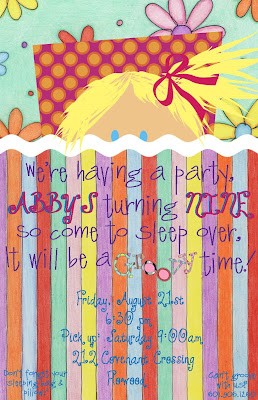 We're having a party,
ABBY'S turning NINE
So come to sleep over,
It will be a GROOVY time!
Friday, August 21st
6:30 pm
Pick up: Saturday 9:00am
212 Covenant Crossing
Flowood
Don't forget your
sleeping bag &
pillow!
Can't groove
with us?